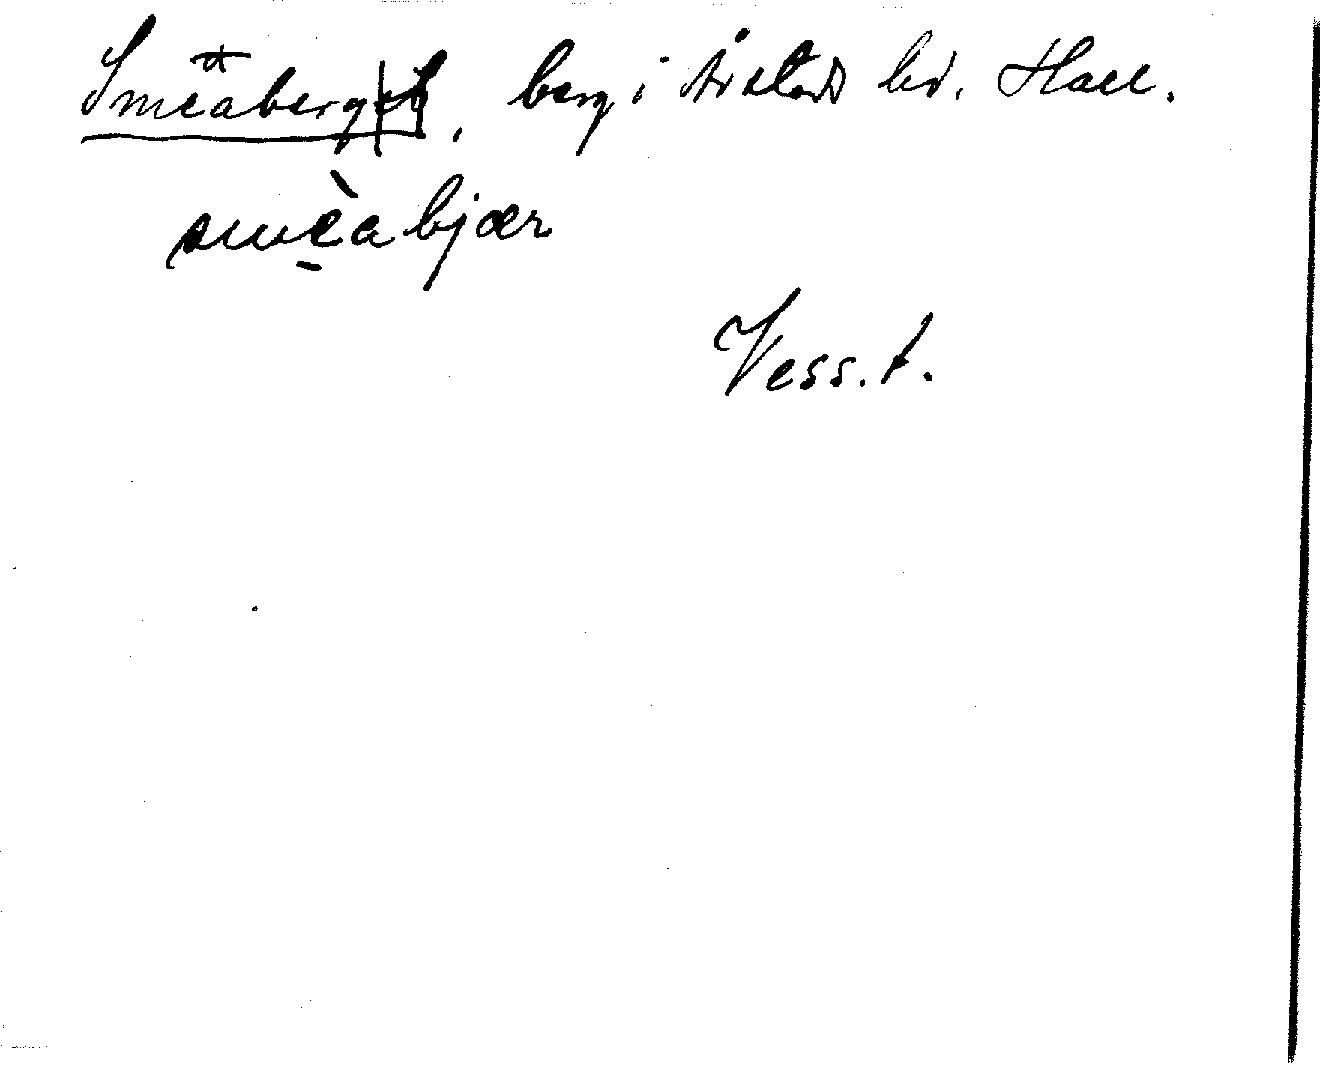 Smeaberget, berg i Årstads hd. Hall.
smèabjær
Vess. t.